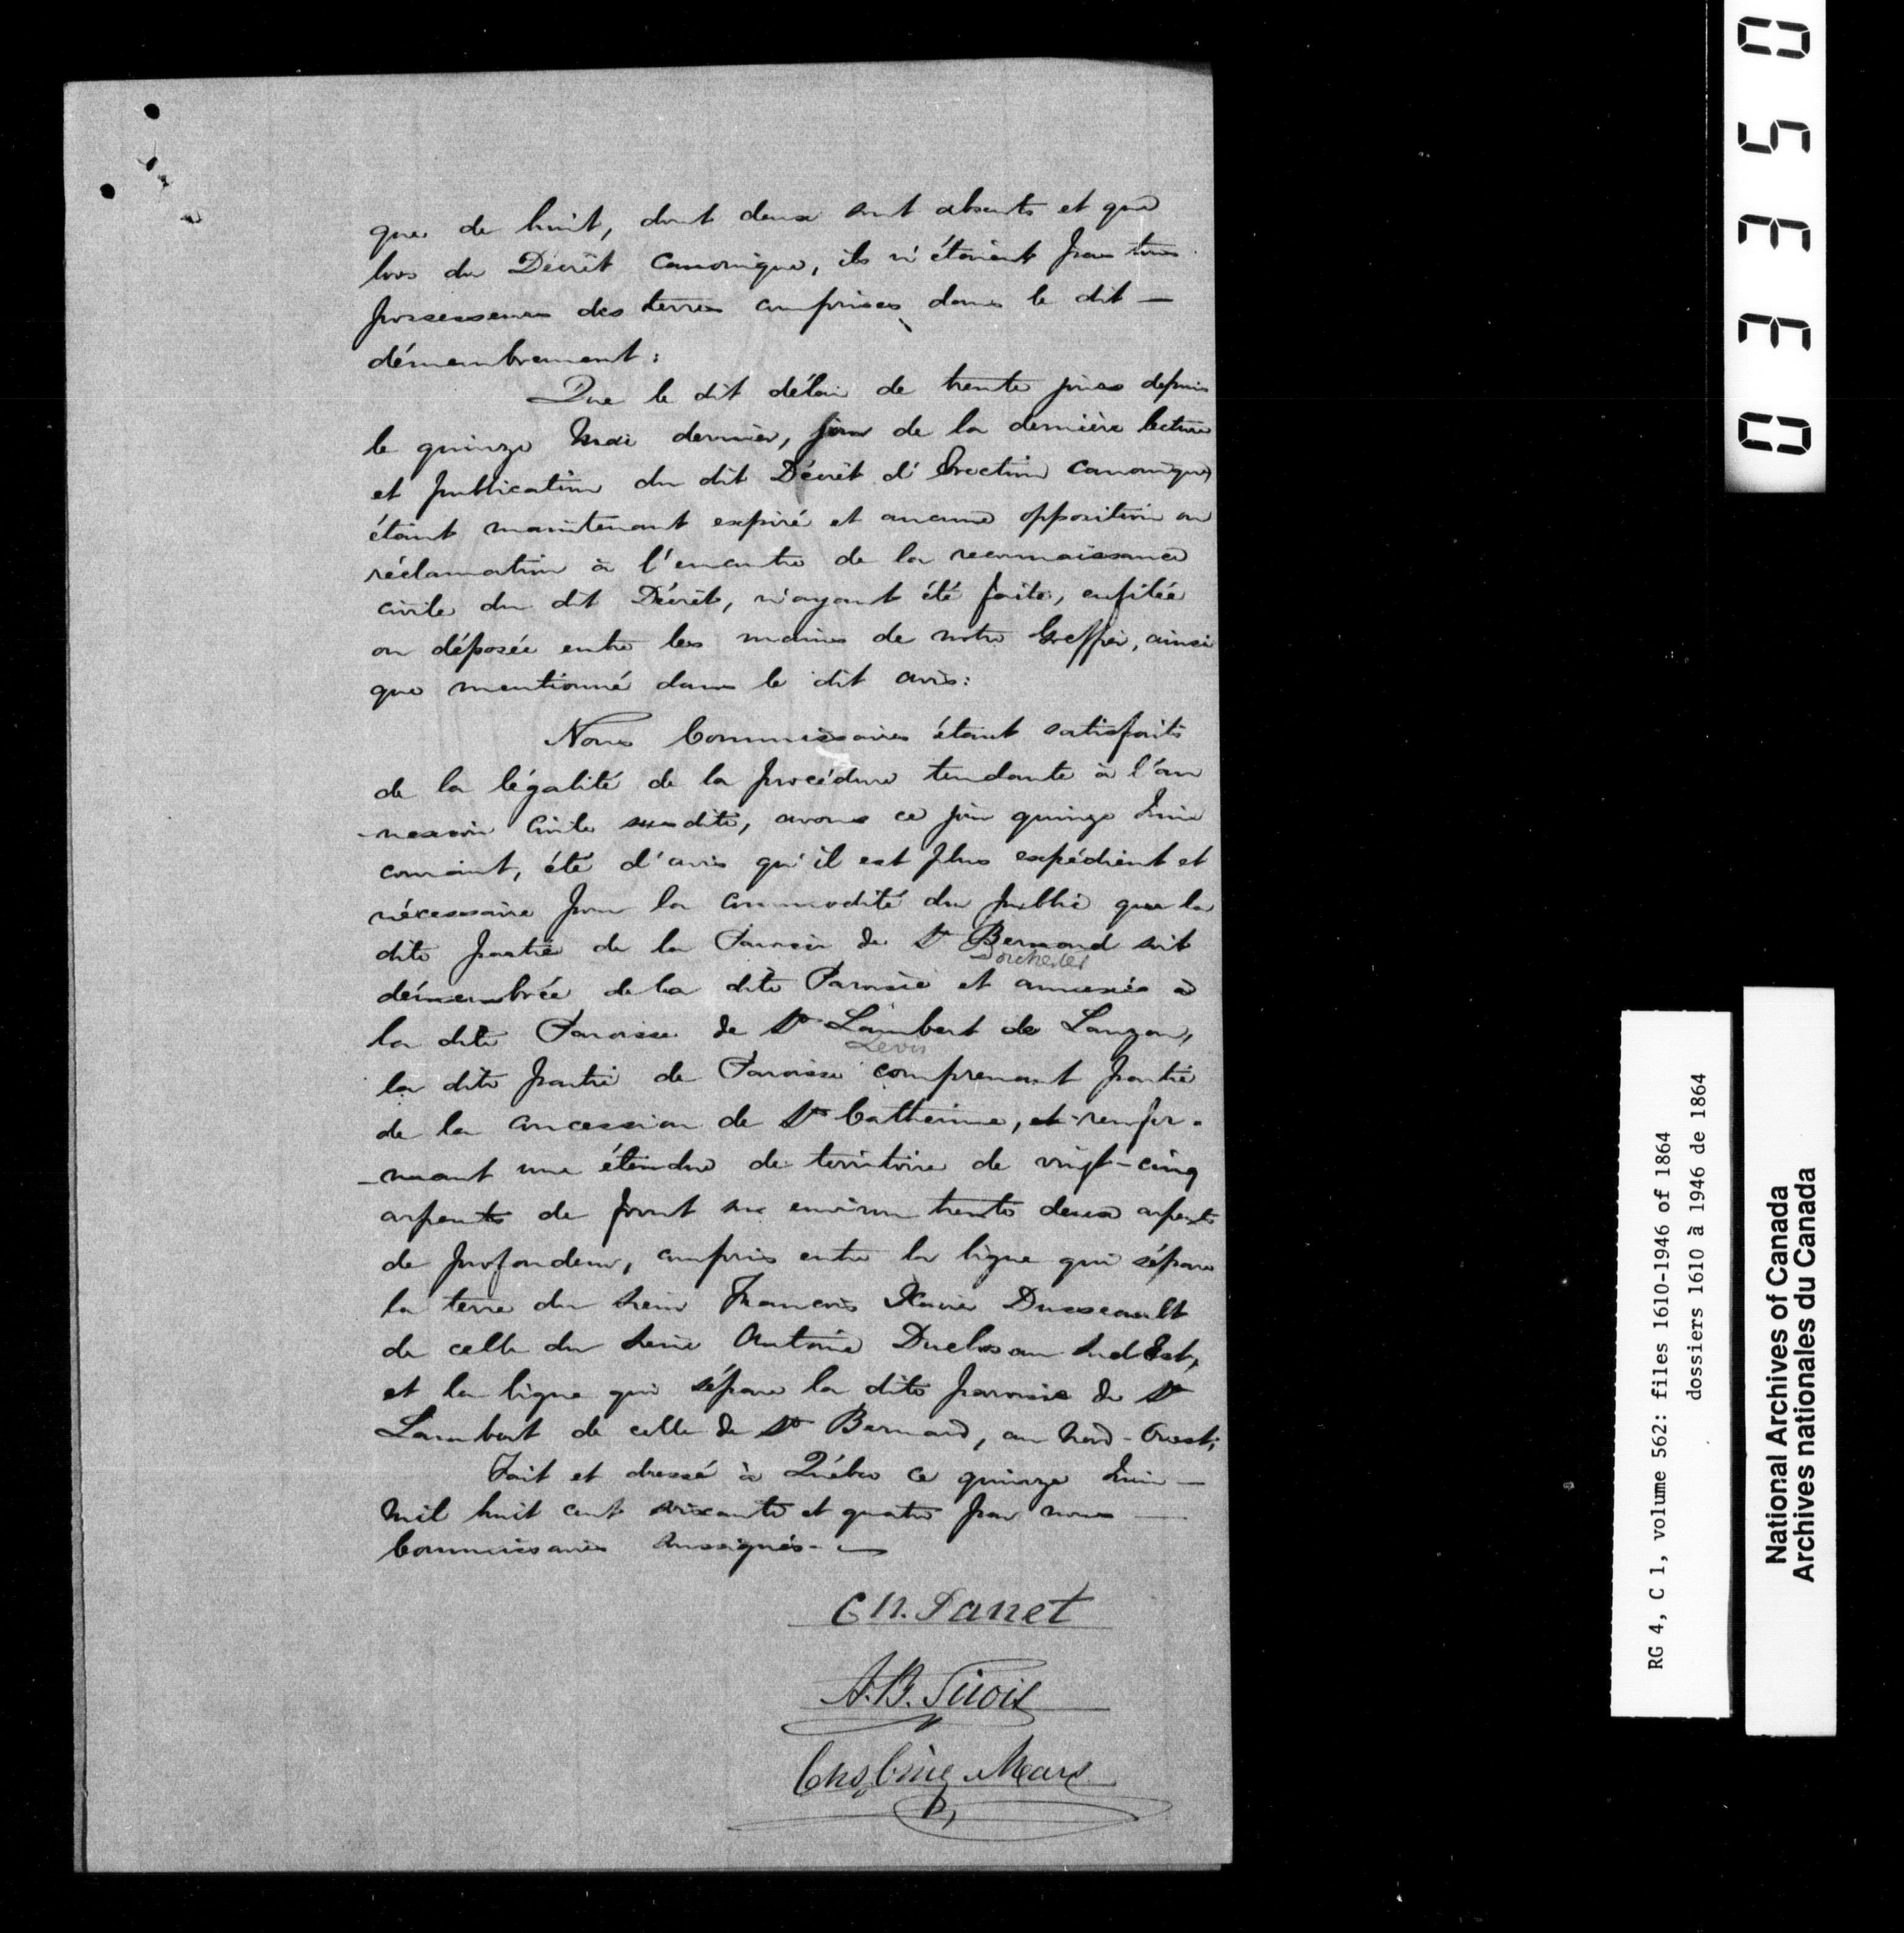 que de huit, dont deux sont absents et que
lors du Décrêt Canonique, ils n'étaient pas tous
possesseurs des terres comprises dans le dit —
démembrement:
Que le dit délai de trente jours depuis
le quinze Mai dernier, jour de la dernière lecture
et publication du dit Décrêt d'Erection Canonique
étant maintenant expiré et aucune opposition ou
réclamation à l'encontre de la reconnaissance
civile du dit Décrêt, n'ayant été faite, enfilée
ou déposée entre les mains de notre Greffier, ainsi
que mentionné dans le dit avis:
Nous Commissaires étant satisfaits
de la légalité de la procédure tendante à l'an
-nexion Civile susdite, avons ce jour quinze Juin
courant, été d'avis qu'il est plus expédient et
nécessaire pour la commodité du public que la
dite partie de la Paroisse de St Bernard soit
Dorchester
démembrée de la dite Paroisse et annexée à
la dite Paroisse de St Lambert de Lauzon,
Levis
la dite partie de Paroisse comprenant partie
de la concession de Ste Catherine, et renfer-
-mant une étendue de territoire de vingt-cinq
arpents de front sur environ trente deux arpents
de profondeur, compris entre la ligne qui sépare
la terre du Sieur Francois Xavier Dusseault
de celle du Sieur Antoine Duclos au Sud Est,
et la ligne qui sépare la dite paroisse de St
Lambert de celle de St Bernard, au Nord-Ouest;
Fait et dressé à Québec ce quinze Juin —
Mil huit cent soixante et quatre par nous —
Commissaires Soussignés. —
Ch. Panet
A.B. Sirois
Chs Cinq-Mars
03350
RG 4, C 1, volume 562: files 1610-1946 of 1864
dossiers 1610 à 1946 de 1864
National Archives of Canada
Archives nationales du Canada